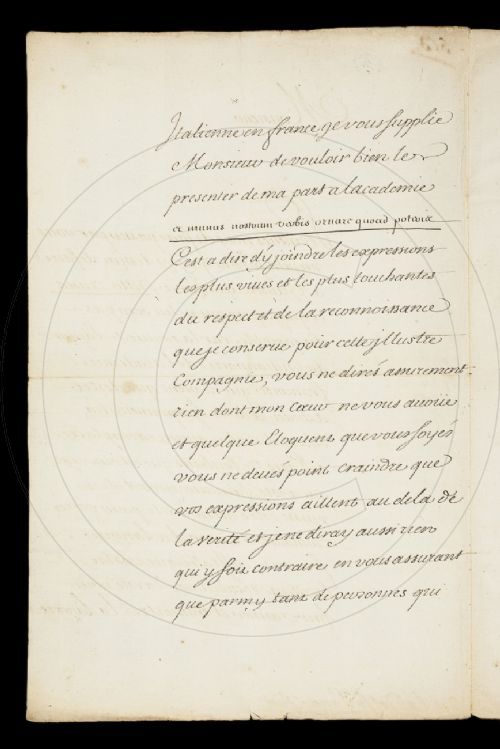 Italienne en france ge vous supplie
Monsieur de vouloir bien le
presenter de ma part a lacademie
munus nostrum ornare
C'est a dire d'y joindre les expressions
les plus vives et les plus touchantes
du respect et de la reconnoissance
que je conserve pour cette jllustre
Compagnie, vous ne dirés assurement
rien dont mon Cœur ne vous avoüe
et quelque Eloquent que vous soyés
vous ne devés point craindre que
vos expressions aillent au dela de
la verité et je ne diray aussi rien
qui y soit contraire en vous assurant
que parmy tant de personnes qui